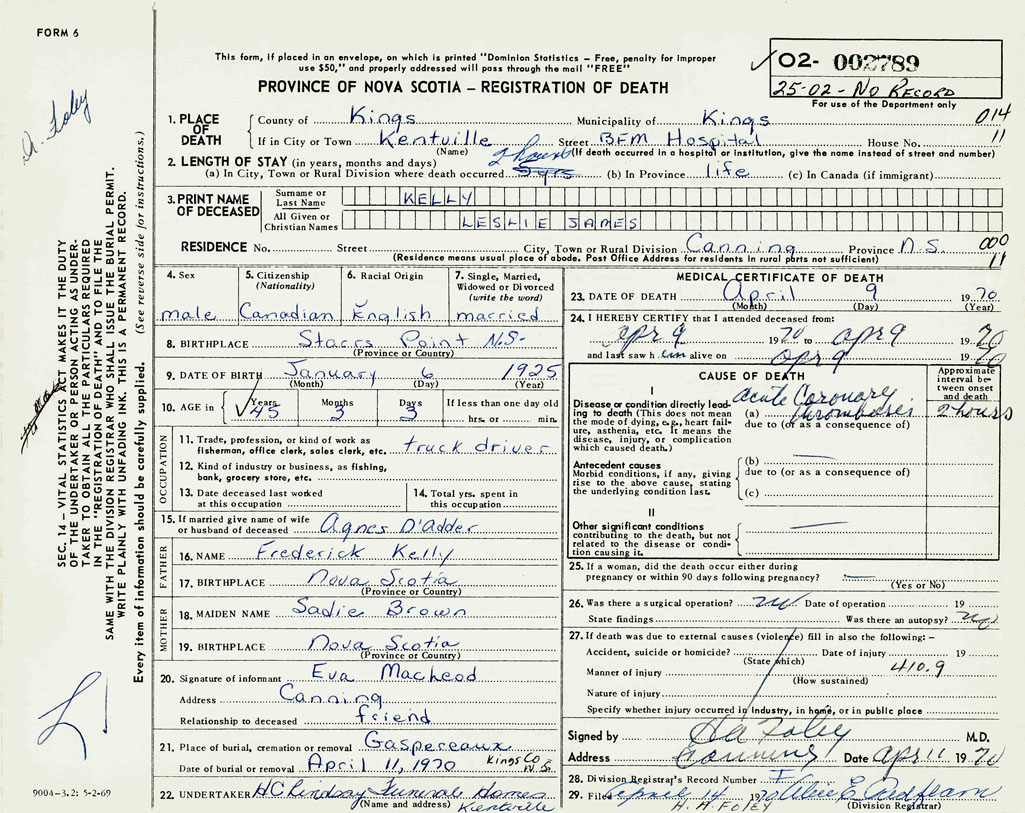 FORM 6
This form, if placed in an envelope, on which is printed "Dominion Statistics – Free, penalty for improper
use $50," and properly addressed will pass through the mail "FREE"
PROVINCE OF NOVA SCOTIA – REGISTRATION OF DEATH
✓ 02- 002789
25-02 - NO RECORD
For use of the Department only
A. Foley
SEC. 14 – VITAL STATISTICS ACT MAKES IT THE DUTY
OF THE UNDERTAKER OR PERSON ACTING AS UNDER-
TAKER TO OBTAIN ALL THE PARTICULARS REQUIRED
IN THE "REGISTRATION OF DEATH" AND TO FILE THE
SAME WITH THE DIVISION REGISTRAR WHO SHALL ISSUE THE BURIAL PERMIT.
WRITE PLAINLY WITH UNFADING INK. THIS IS A PERMANENT RECORD.
Every item of information should be carefully supplied. (See reverse side for instructions.)
1. PLACE OF DEATH County of Kings Municipality of Kings 014
If in City or Town Kentville Street BFM Hospital House No. 11
(Name) (If death occurred in a hospital or institution, give the name instead of street and number)
2. LENGTH OF STAY (in years, months and days)
(a) In City, Town or Rural Division where death occurred 2 hours 5yrs (b) In Province life (c) In Canada (if immigrant)
3. PRINT NAME OF DECEASED Surname or Last Name KELLY
All Given or Christian Names LESLIE JAMES
RESIDENCE No. Street City, Town or Rural Division Canning Province N.S. 000
(Residence means usual place of abode. Post Office Address for residents in rural parts not sufficient) 11
4. Sex male
5. Citizenship (Nationality) Canadian
6. Racial Origin English
7. Single, Married, Widowed or Divorced (write the word) married
8. BIRTHPLACE Starrs Point N.S.
(Province or Country)
9. DATE OF BIRTH January 6 1925
(Month) (Day) (Year)
10. AGE in ✓ Years 45 Months 3 Days 3 If less than one day old hrs. or min.
OCCUPATION
11. Trade, profession, or kind of work as
fisherman, office clerk, sales clerk, etc. truck driver
12. Kind of industry or business, as fishing,
bank, grocery store, etc.
13. Date deceased last worked
at this occupation
14. Total yrs. spent in
this occupation
15. If married give name of wife
or husband of deceased Agnes D'Adder
FATHER
16. NAME Frederick Kelly
17. BIRTHPLACE Nova Scotia
(Province or Country)
MOTHER
18. MAIDEN NAME Sadie Brown
19. BIRTHPLACE Nova Scotia
(Province or Country)
20. Signature of informant Eva MacLeod
Address Canning
Relationship to deceased friend
21. Place of burial, cremation or removal Gaspereaux
Kings Co N.S.
Date of burial or removal April 11, 1970
22. UNDERTAKER HC Lindsay Funeral Homes
(Name and address) Kentville
MEDICAL CERTIFICATE OF DEATH
23. DATE OF DEATH April 9 1970
(Month) (Day) (Year)
24. I HEREBY CERTIFY that I attended deceased from:
apr 9 1970 to apr 9 1970
and last saw him alive on apr 9 1970
CAUSE OF DEATH
Approximate interval between onset and death
I
Disease or condition directly leading to death (This does not mean the mode of dying, e.g., heart failure, asthenia, etc. It means the disease, injury, or complication which caused death.)
(a) acute Coronary thrombosis 2 hours
due to (or as a consequence of)
Antecedent causes
Morbid conditions, if any, giving rise to the above cause, stating the underlying condition last.
(b) —
due to (or as a consequence of)
(c)
II
Other significant conditions
contributing to the death, but not related to the disease or condition causing it.
25. If a woman, did the death occur either during
pregnancy or within 90 days following pregnancy? —
(Yes or No)
26. Was there a surgical operation? no Date of operation 19
State findings Was there an autopsy? no
27. If death was due to external causes (violence) fill in also the following: –
Accident, suicide or homicide? Date of injury 19
(State which)
Manner of injury 410.9
(How sustained)
Nature of injury
Specify whether injury occurred in Industry, in home, or in public place
Signed by HA Foley M.D.
Address Canning Date Apr 11 1970
28. Division Registrar's Record Number
29. Filed April 14 1970
H. A. FOLEY (Division Registrar)
9004-3.2: 5-2-69